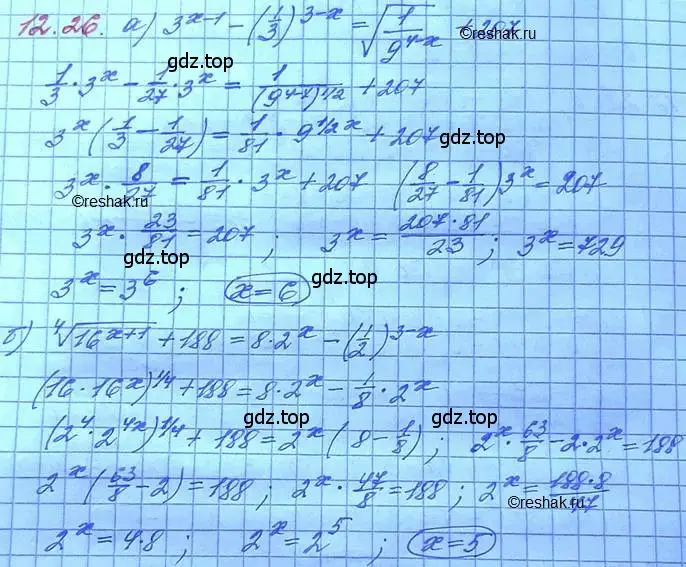 12.26. а) 3^(x-1) - (1/3)^(3-x) = √(1/9^(4-x)) + 207
©reshak.ru
gdz.top
1/3 · 3^x - 1/27 · 3^x = 1/(9^(4-x))^(1/2) + 207
gdz.top
3^x (1/3 - 1/27) = 1/81 · 9^(1/2 x) + 207
gdz.top
3^x · 8/27 = 1/81 · 3^x + 207 (8/27 - 1/81) 3^x = 207
©reshak.ru
3^x · 23/81 = 207 ; 3^x = 207·81/23 ; 3^x = 729
gdz.top gdz.top
3^x = 3^6 ; x = 6
б) ∜(16^(x+1)) + 188 = 8·2^x - (1/2)^(3-x)
(16·16^x)^(1/4) + 188 = 8·2^x - 1/8 · 2^x
gdz.top gdz.top
(2^4 · 2^(4x))^(1/4) + 188 = 2^x (8 - 1/8) ; 2^x · 63/8 - 2·2^x = 188
2^x (63/8 - 2) = 188 ; 2^x · 47/8 = 188 ; 2^x = 188·8/47
©reshak.ru
gdz.top
2^x = 4·8 ; 2^x = 2^5 ; x = 5